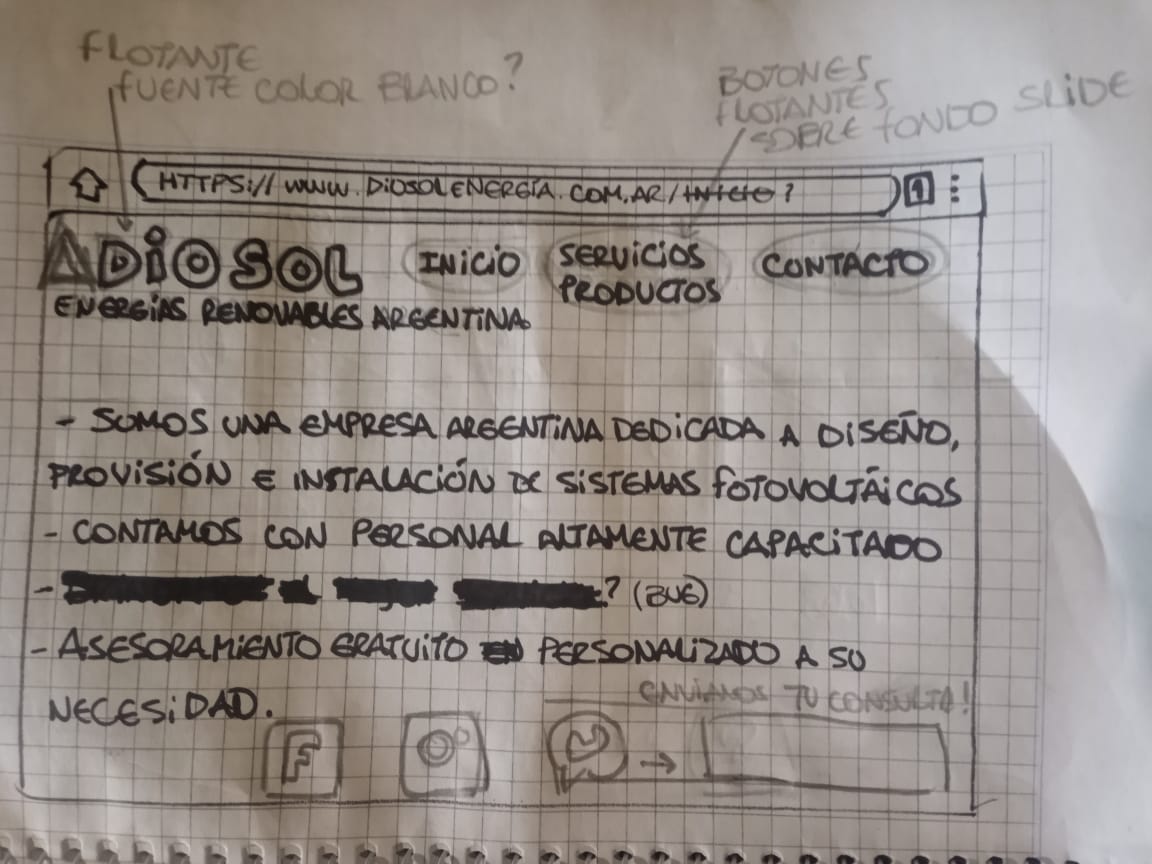 FLOTANTE
FUENTE COLOR BLANCO?
BOTONES
FLOTANTES
SOBRE FONDO SLIDE
HTTPS://WWW.DIOSOLENERGÍA.COM.AR/INICIO?
1
DIOSOL
INICIO
SERVICIOS
PRODUCTOS
CONTACTO
ENERGÍAS RENOVABLES ARGENTINA
- SOMOS UNA EMPRESA ARGENTINA DEDICADA A DISEÑO,
PROVISIÓN E INSTALACIÓN DE SISTEMAS FOTOVOLTÁICOS
- CONTAMOS CON PERSONAL ALTAMENTE CAPACITADO
- ? (BUG)
- ASESORAMIENTO GRATUITO PERSONALIZADO A SU
NECESIDAD.
ENVIANOS TU CONSULTA!
F